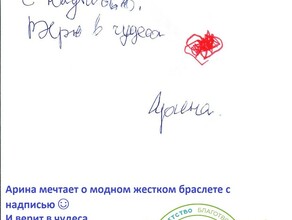 с надписью.
Верю в чудеса
Арина.
Арина мечтает о модном жестком браслете с
надписью ☺
И верит в чудеса
ЕТСТВО БЛАГОТВО